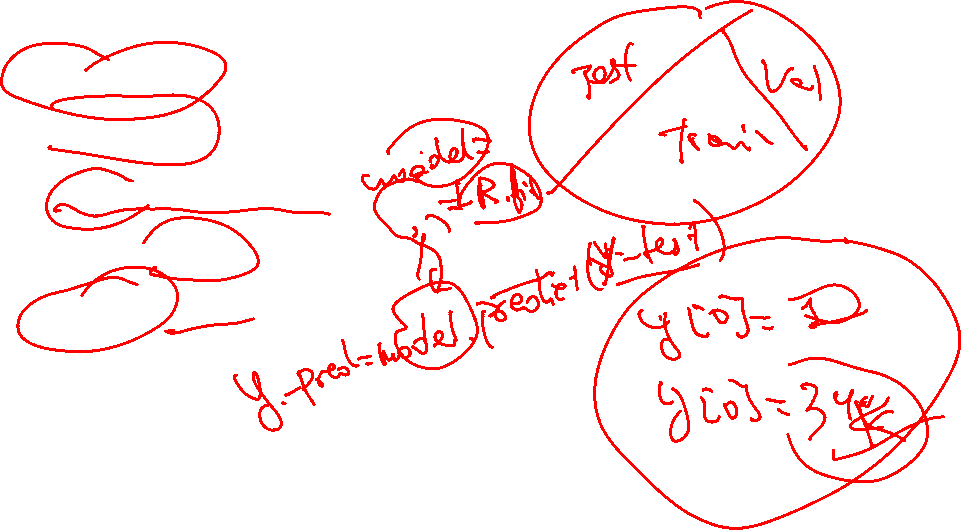 Test
Val
Train
model =
LR.fit
y-pred=model.predict(y-test)
y[0]=1
y[0]=34